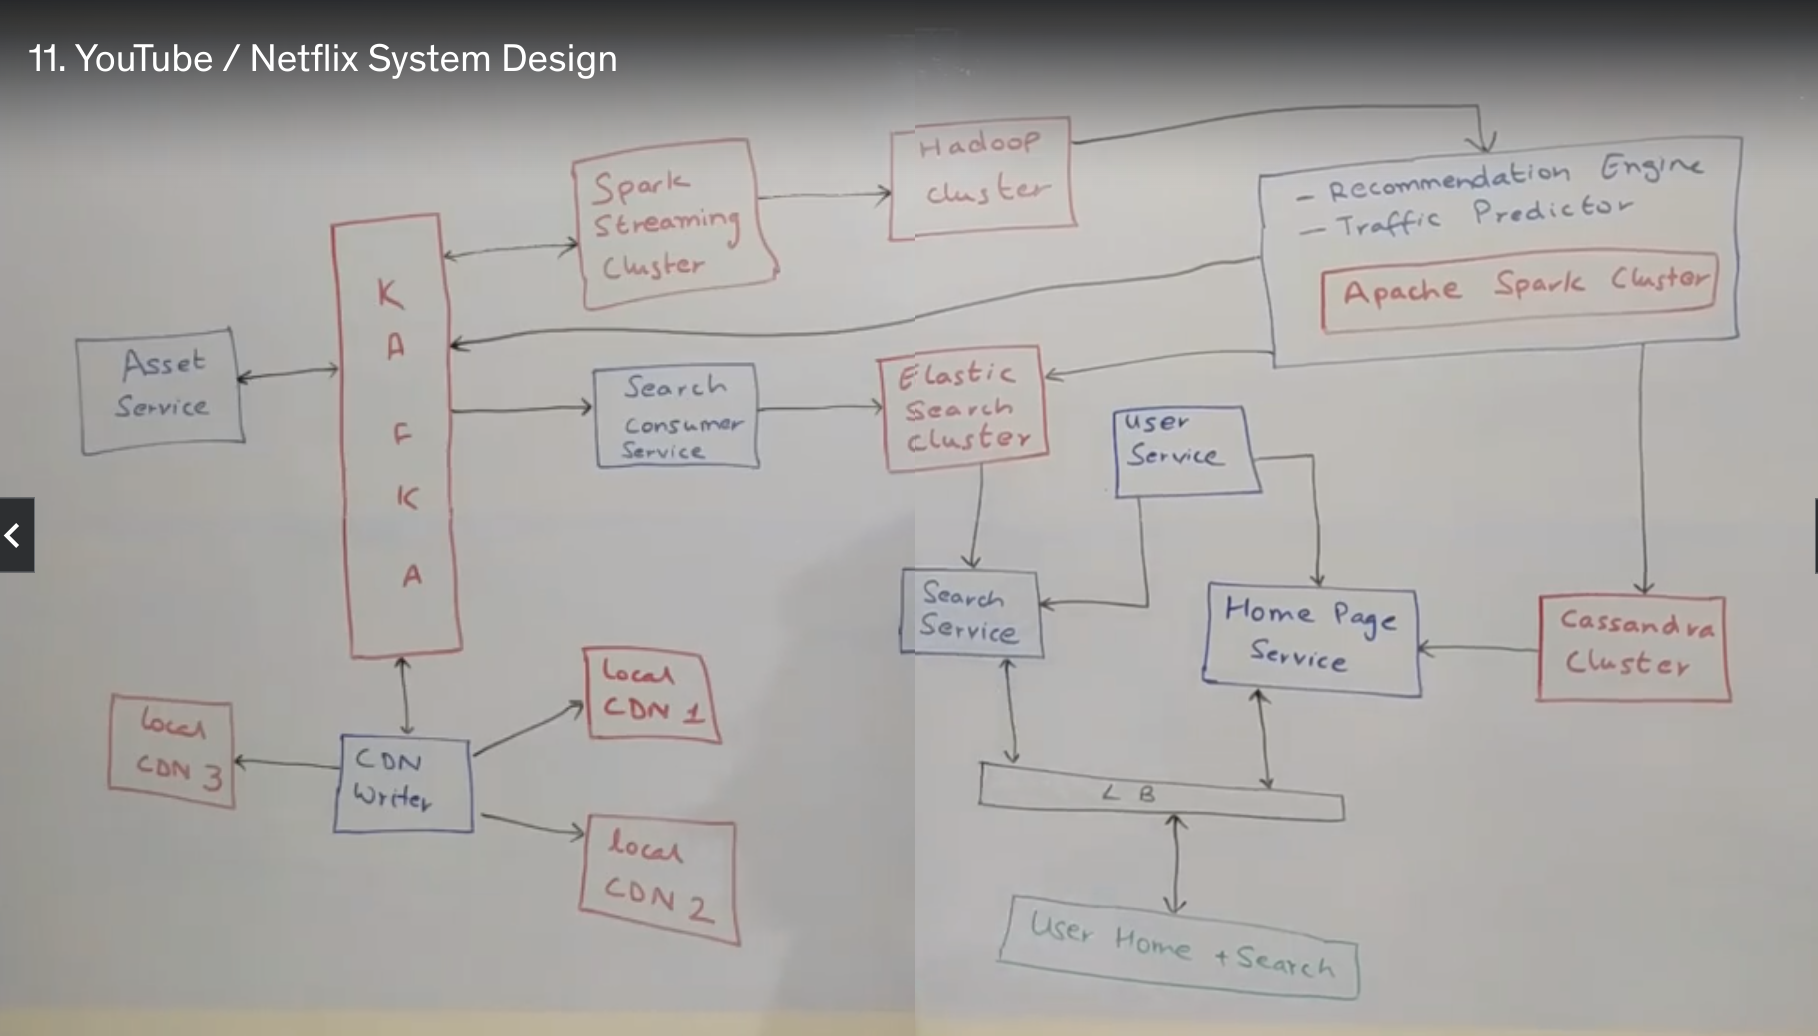 11. YouTube / Netflix System Design
Hadoop
cluster
Spark
Streaming
Cluster
- Recommendation Engine
- Traffic Predictor
Apache Spark Cluster
K
A
F
K
A
Asset
Service
Search
Consumer
Service
Elastic
Search
cluster
User
Service
Search
Service
Home Page
Service
Cassandra
Cluster
local
CDN 1
local
CDN 3
CDN
Writer
local
CDN 2
L B
User Home + Search